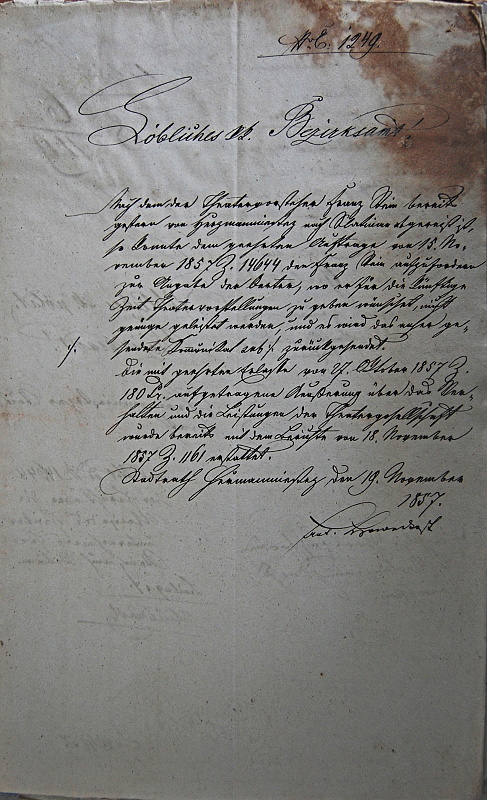 NrE. 1249.
Löbliches kk. Bezirksamt!
Nach dem der Theatervorsteher Franz Stein bereits
gestern von Herzmanmiestez nach Slatinan abgereist ist,
so konnte dem geehrten Auftrage von 15. No-
vember 1857 Z. 14644 den Franz Stein aufzufordern
zur Angabe der Oerter, wo er für die künftige
Zeit Theatervorstellungen zu geben wünschet, nicht
genüge geleistet werden, und es wird das anher ge-
./. sendete Komunikat sub ./. zurückgesendet.
Die mit geehrten Erlasse von 27. Oktober 1857 Z.
180 aufgetragene Aeußerung über das Ver-
halten und die Leistungen der Theatergesellschaft
wurde bereits mit dem Berichte von 18. November
1857 Z. 1161 erstattet.
Stadtrath Hermanmiestez den 19. November
1857.